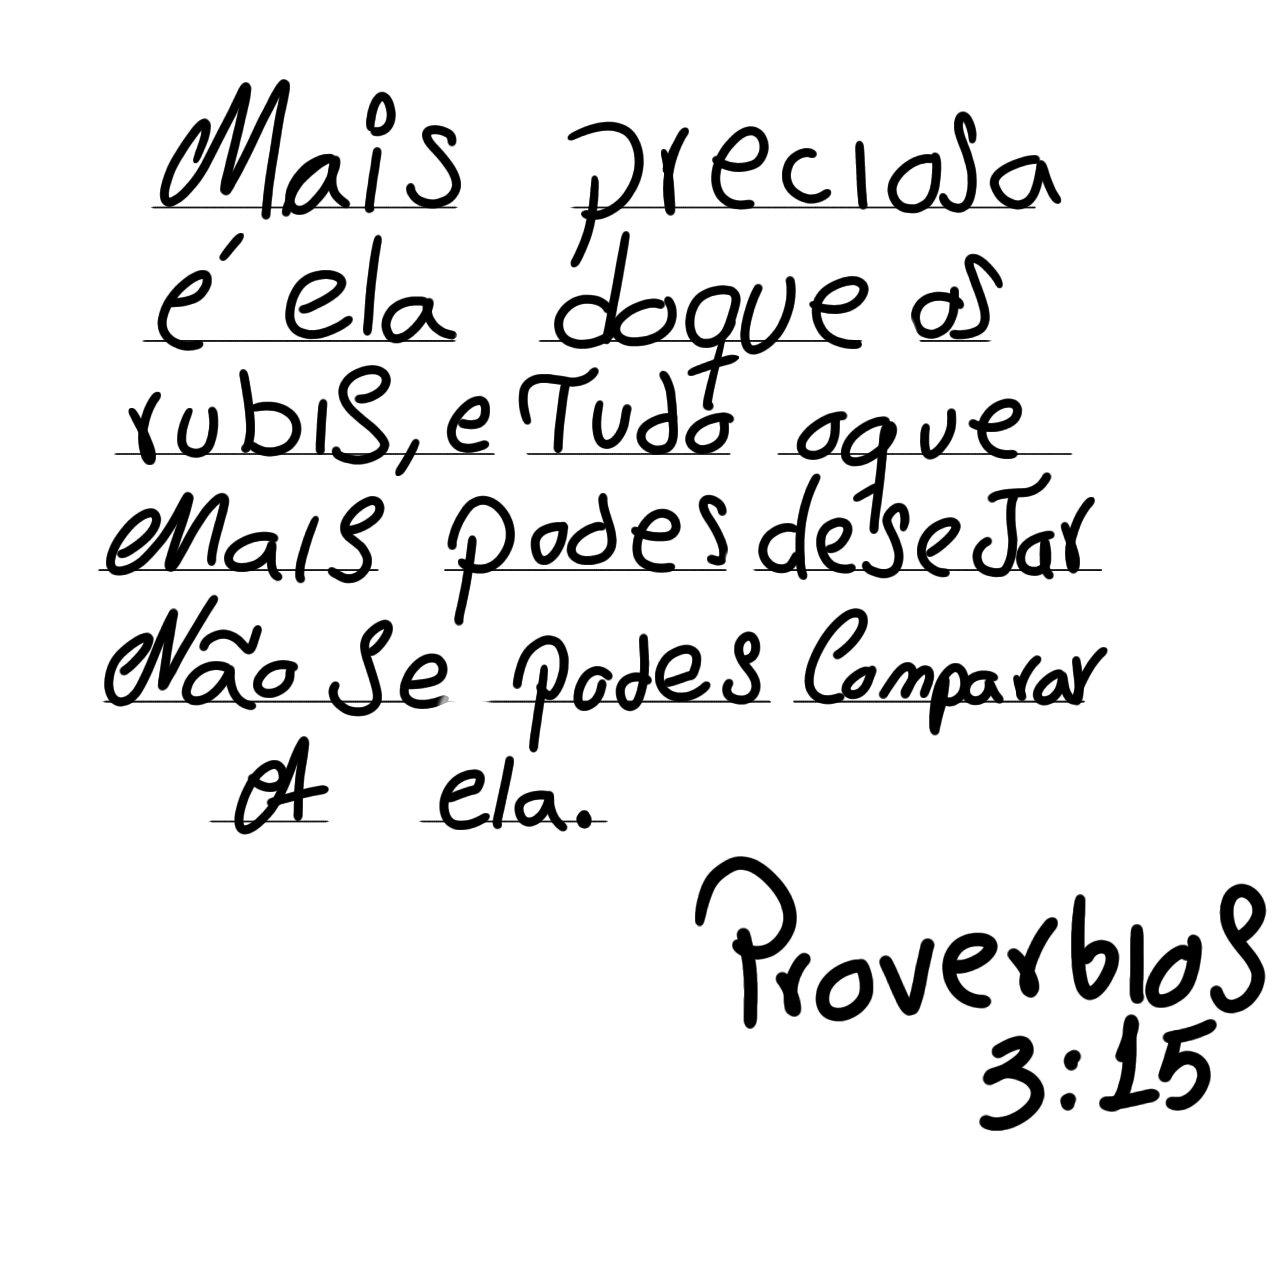 Mais preciosa
é ela doque os
rubis, e Tudo oque
Mais podes deseJar
Não se podes Comparar
A ela.
Proverbios
3:15